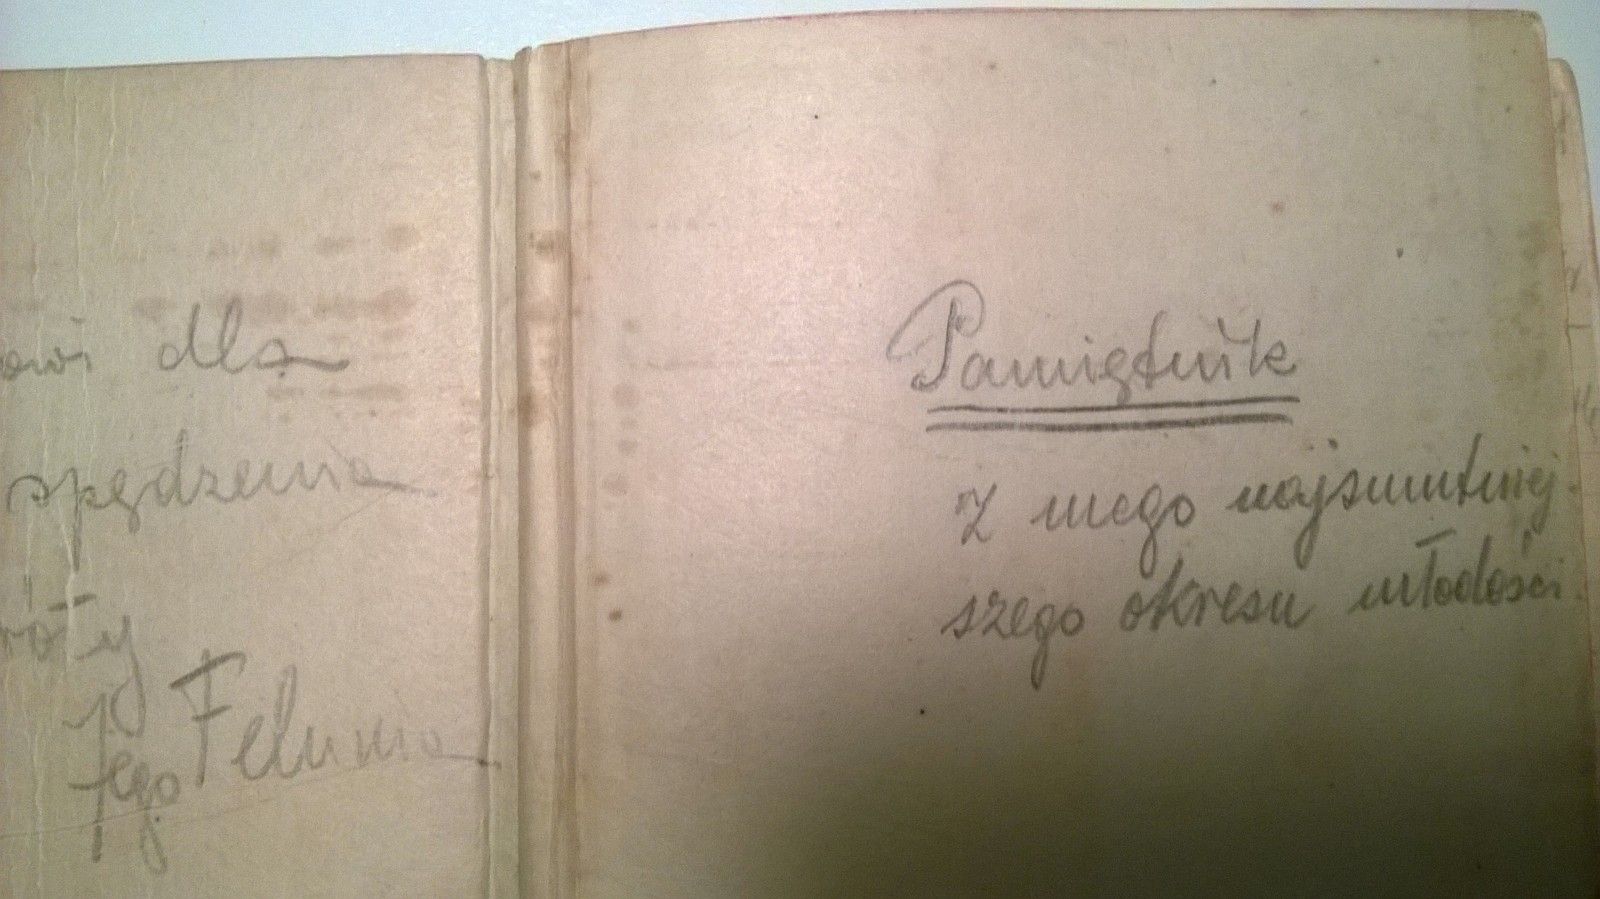 dla
spędzenia
Jego Felunia
Pamiętnik
z mego najsmutniej-
szego okresu młodości.